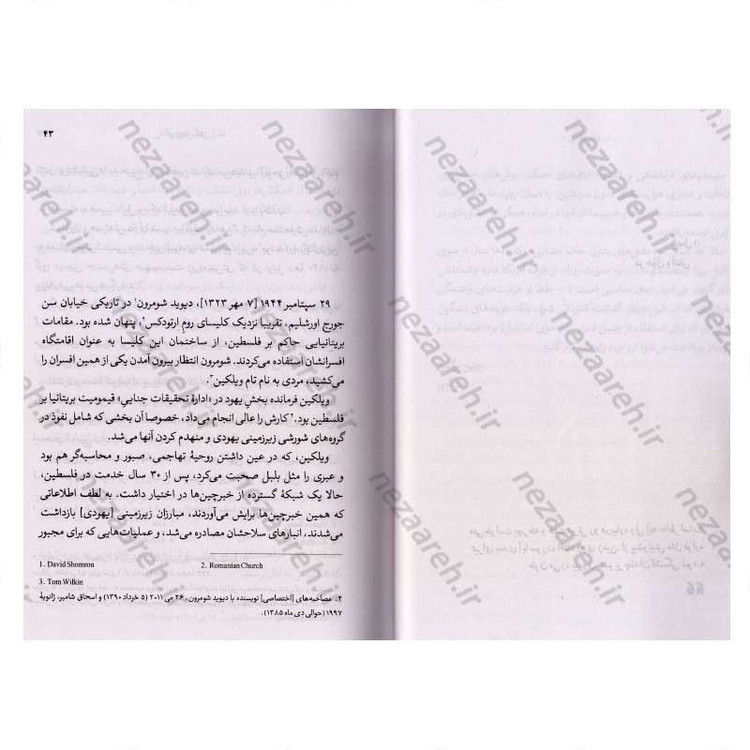 ۴۳
۲۹ سپتامبر ۱۹۴۴ [۷ مهر ۱۳۲۳]، دیوید شومرون¹ در تاریکی خیابان سن
جورج اورشلیم، تقریبا نزدیک کلیسای روم ارتودکس²، پنهان شده بود. مقامات
بریتانیایی حاکم بر فلسطین، از ساختمان این کلیسا به عنوان اقامتگاه
افسرانشان استفاده می‌کردند. شومرون انتظار بیرون آمدن یکی از همین افسران را
می‌کشید، مردی به نام تام ویلکین³.
ویلکین فرمانده بخشِ یهود در «ادارهٔ تحقیقات جنایی» قیمومیت بریتانیا بر
فلسطین بود.⁴ کارش را عالی انجام می‌داد، خصوصا آن بخشی که شامل نفوذ در
گروه‌های شورشی زیرزمینی یهودی و منهدم کردن آنها می‌شد.
ویلکین، که در عین داشتن روحیهٔ تهاجمی، صبور و محاسبه‌گر هم بود
و عبری را مثل بلبل صحبت می‌کرد، پس از ۳۰ سال خدمت در فلسطین،
حالا یک شبکهٔ گسترده از خبرچین‌ها در اختیار داشت. به لطف اطلاعاتی
که همین خبرچین‌ها برایش می‌آوردند، مبارزان زیرزمینی [یهودی] بازداشت
می‌شدند، انبارهای سلاحشان مصادره می‌شد، و عملیات‌هایی که برای مجبور
1. David Shomron 2. Romanian Church
3. Tom Wilkin
۴. مصاحبه‌های [اختصاصی] نویسنده با دیوید شومرون، ۲۶ می ۲۰۱۱ (۵ خرداد ۱۳۹۰) و اسحاق شامیر، ژانویهٔ
۱۹۹۷ (حوالی دی ماه ۱۳۸۵).
nezaareh.ir
nezaareh.ir
nezaareh.ir
nezaareh.ir
nezaareh.ir
nezaareh.ir
nezaareh.ir